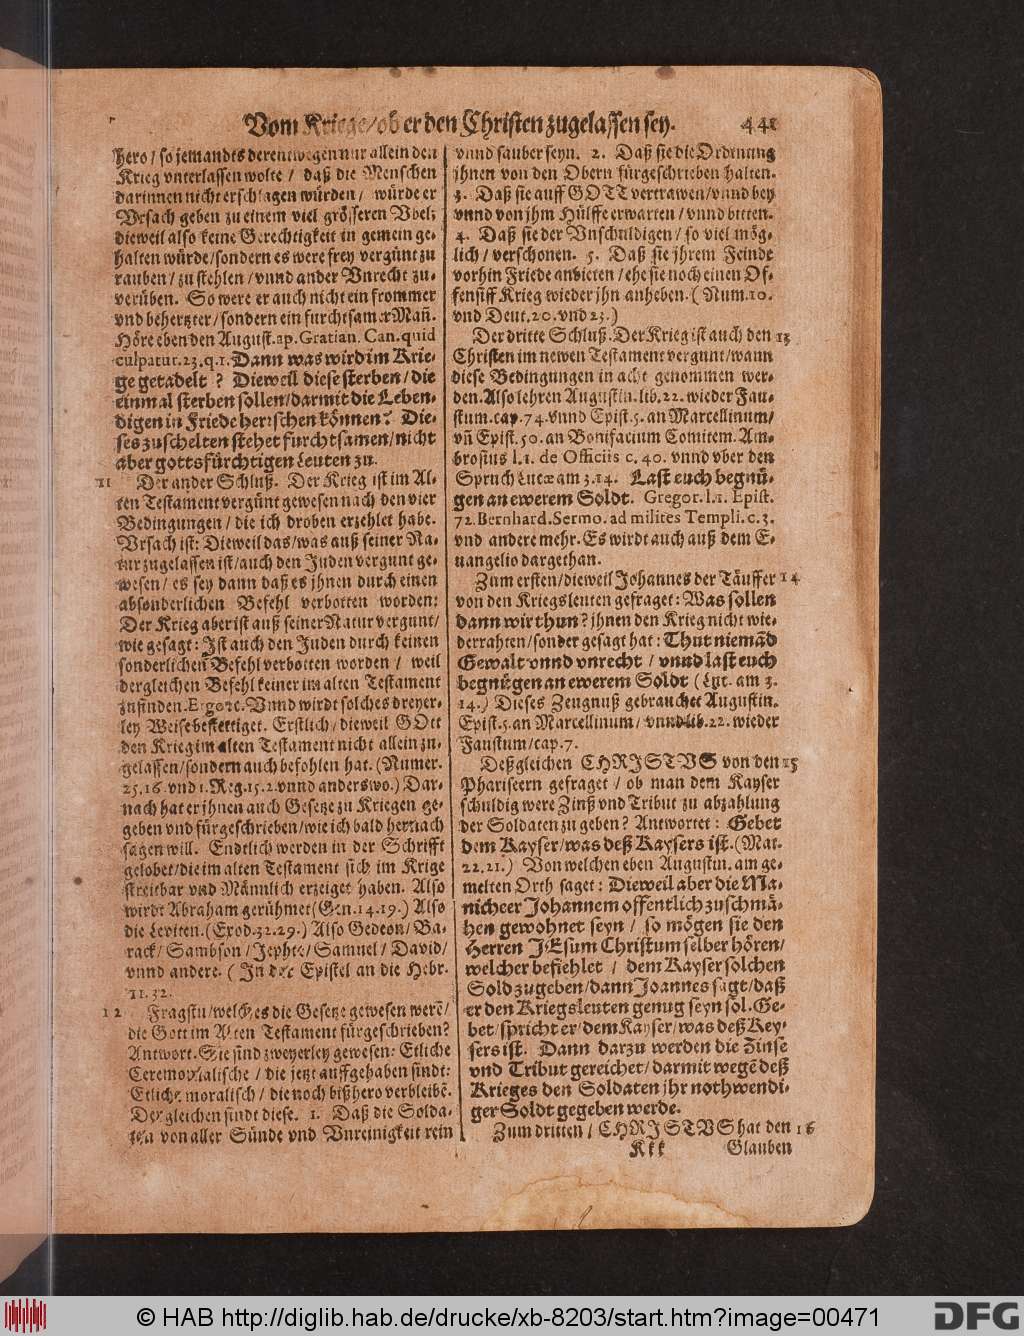 Vom Kriege/ ob er den Christen zugelassen sey. 441
hero / so jemandts derentwegen nur allein den
Krieg vnterlassen wolte / daß die Menschen
darinnen nicht erschlagen würden / würde er
Vrsach geben zu einem viel grösseren Vbel:
dieweil also keine Gerechtigkeit in gemein ge-
halten würde/ sondern es were frey vergünt zu
rauben / zu stehlen / vnnd ander Vnrecht zu-
verüben. So were er auch nicht ein frommer
vnd behertzter / sondern ein furchtsamer Mañ.
Höre eben den August. ap. Gratian. Can. quid
culpatur. 23. q. 1. Dann was wird im Krie-
ge getadelt ? Dieweil diese sterben / die
einmal sterben sollen / darmit die Leben-
digen in Friede herrschen können? Die-
ses zuschelten stehet furchtsamen / nicht
aber gottsfürchtigen Leuten zu.
11 Der ander Schluß. Der Krieg ist im Al-
ten Testament vergünt gewesen nach den vier
Bedingungen / die ich droben erzehlet habe.
Vrsach ist: Dieweil das / was auß seiner Na-
tur zugelassen ist / auch den Juden vergunt ge-
wesen / es sey dann daß es jhnen durch einen
absonderlichen Befehl verbotten worden:
Der Krieg aber ist auß seiner Natur vergunt/
wie gesagt: Ist auch den Juden durch keinen
sonderlichen Befehl verbotten worden / weil
dergleichen Befehl keiner im alten Testament
zufinden. Ergo etc. Vnnd wirdt solches dreyer-
ley Weise bestettiget. Erstlich / dieweil GOtt
den Krieg im alten Testament nicht allein zu-
gelassen / sondern auch befohlen hat. (Numer.
25. 16. vnd 1. Reg. 15. 2. vnnd anderswo.) Dar-
nach hat er jhnen auch Gesetze zu Kriegen ge-
geben vnd fürgeschrieben / wie ich bald hernach
sagen will. Endtlich werden in der Schrifft
gelobet / die im alten Testament sich im Krige
streitbar vnd Männlich erzeiget haben. Also
wirdt Abraham gerühmet (Gen. 14. 19.) Also
die Leviten. (Exod. 32. 29.) Also Gedeon / Ba-
rack / Sambson / Jephte / Samuel / David /
vnnd andere. ( In der Epistel an die Hebr.
11. 32.
12 Fragstu / welches die Gesetze gewesen werẽ/
die Gott im Alten Testament fürgeschrieben?
Antwort. Sie sind zweyerley gewesen: Etliche
Ceremonialische / die jetzt auffgehaben sindt:
Etliche moralisch / die noch bißhero verbleibẽ.
Dergleichen sindt diese. 1. Daß die Solda-
ten von aller Sünde vnd Vnreinigkeit rein
vnnd sauber seyn. 2. Daß sie die Ordenung
jhnen von den Obern fürgeschrieben halten.
3. Daß sie auff GOTT vertrawen / vnnd bey
vnnd von jhm Hülffe erwarten / vnnd bitten.
4. Daß sie der Vnschuldigen / so viel mög-
lich / verschonen. 5. Daß sie jhrem Feinde
vorhin Friede anbieten / ehe sie noch einen Of-
fensiff Krieg wieder jhn anheben. ( Num. 10.
vnd Deut. 20. vnd 23.)
Der dritte Schluß. Der Krieg ist auch den 13
Christen im newen Testament vergunt / wann
diese Bedingungen in acht genommen wer-
den. Also lehren Augustin. lib. 22. wieder Fau-
stum. cap. 74. vnnd Epist. 5. an Marcellinum/
vñ Epist. 50. an Bonifacium Comitem. Am-
brosius l. 1. de Officiis c. 40. vnnd vber den
Spruch Lucæ am 3. 14. Last euch begnü-
gen an ewerem Soldt. Gregor. l. 1. Epist.
72. Bernhard. Sermo. ad milites Templi. c. 3.
vnd andere mehr. Es wirdt auch auß dem E-
uangelio dargethan.
Zum ersten / dieweil Johannes der Täuffer 14
von den Kriegsleuten gefraget: Was sollen
dann wir thun? jhnen den Krieg nicht wie-
derrahten / sonder gesagt hat: Thut niemãd
Gewalt vnnd vnrecht / vnnd last euch
begnügen an ewerem Soldt ( Luc. am 3.
14.) Dieses Zeugnuß gebrauchet Augustin.
Epist. 5. an Marcellinum / vnnd lib. 22. wieder
Faustum / cap. 7.
Deßgleichen CHRISTVS von den 15
Phariseern gefraget / ob man dem Kayser
schuldig were Zinß vnd Tribut zu abzahlung
der Soldaten zu geben? Antwortet: Gebet
dem Kayser / was deß Kaysers ist. (Mat.
22. 21.) Von welchen eben Augustin. am ge-
melten Orth saget: Dieweil aber die Ma-
nicheer Johannem offentlich zu schmä-
hen gewohnet seyn / so mögen sie den
Herren JEsum Christum selber hören/
welcher befiehlet / dem Kayser solchen
Sold zugeben / dann Joannes sagt / daß
er den Kriegsleuten genug seyn sol. Ge-
bet / spricht er / dem Kayser / was deß Key-
sers ist. Dann darzu werden die Zinse
vnd Tribut gereichet / darmit wegẽ deß
Krieges den Soldaten jhr nothwendi-
ger Soldt gegeben werde.
Zum dritten / CHRISTVS hat den 16
Kkk Glauben
© HAB http://diglib.hab.de/drucke/xb-8203/start.htm?image=00471
DFG